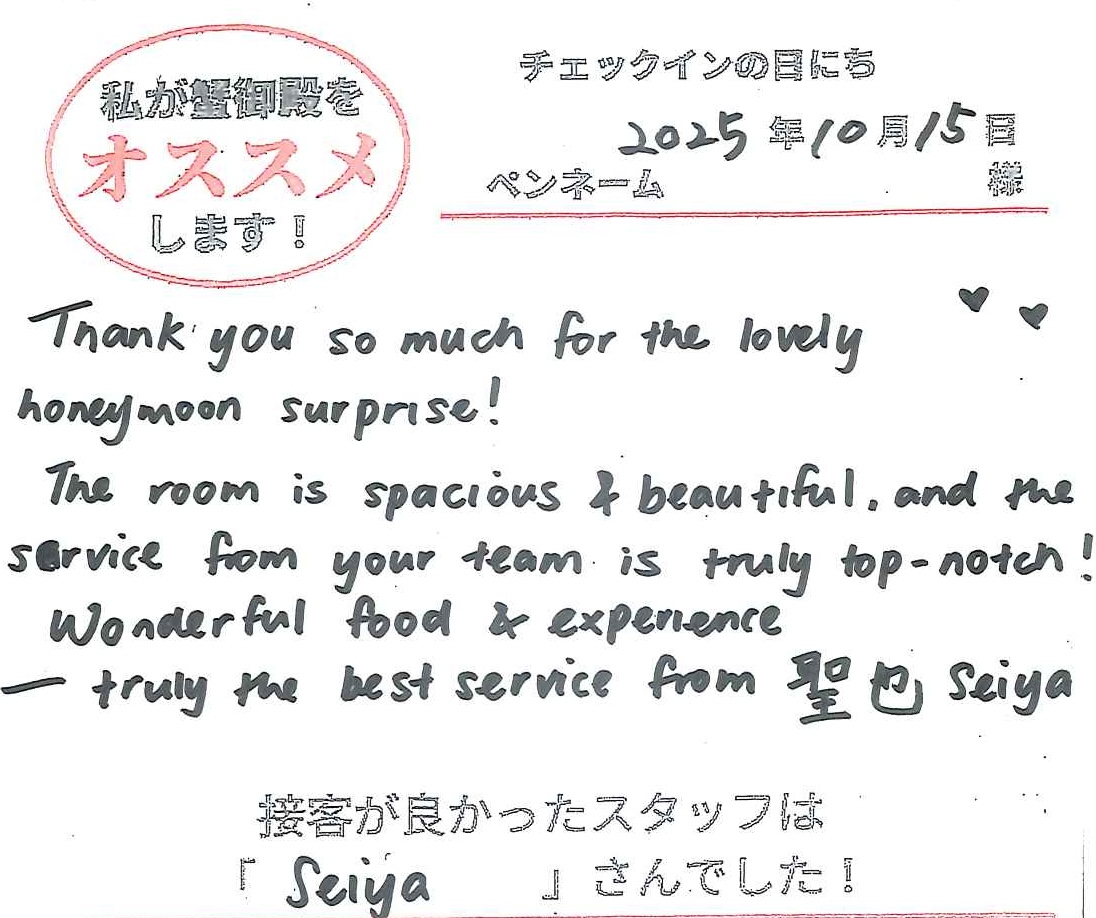 私が蟹御殿を
オススメ
します！
チェックインの日にち
2025年10月15日
ペンネーム 様
Thank you so much for the lovely ♥ ♥
honeymoon surprise!
The room is spacious & beautiful, and the
service from your team is truly top-notch!
Wonderful food & experience
— truly the best service from 聖也 Seiya
接客が良かったスタッフは
「 Seiya 」さんでした！